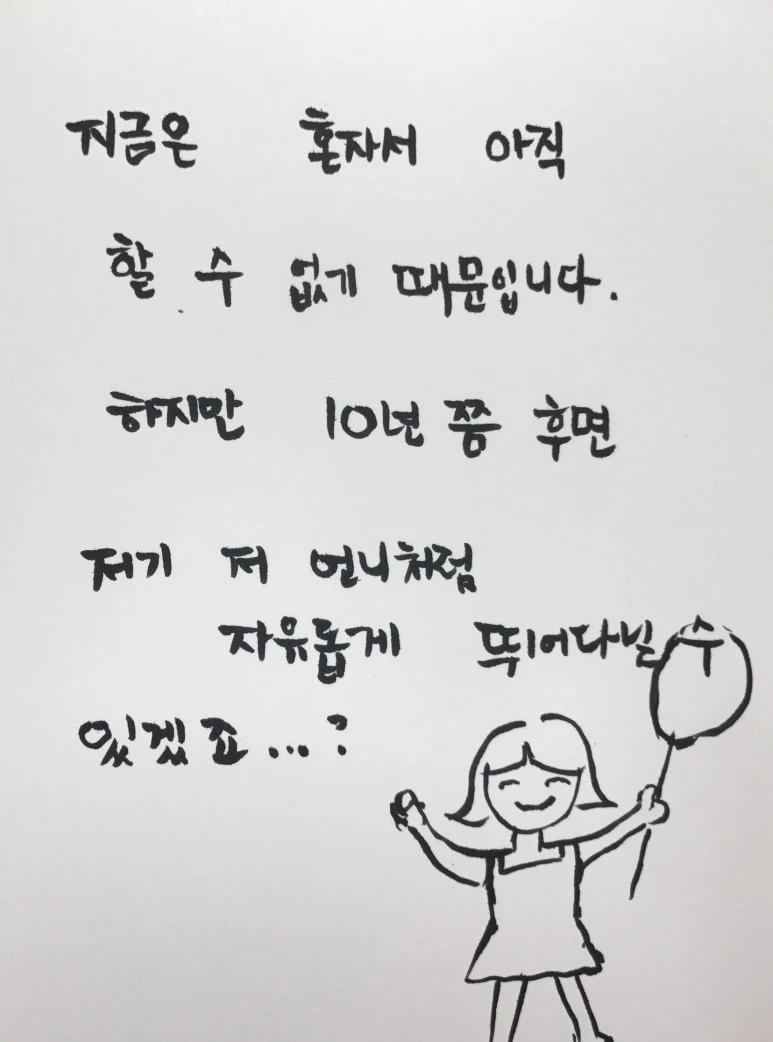 지금은 혼자서 아직
할 수 없기 때문입니다.
하지만 10년 쯤 후면
저기 저 언니처럼
자유롭게 뛰어다닐 수
있겠죠...?